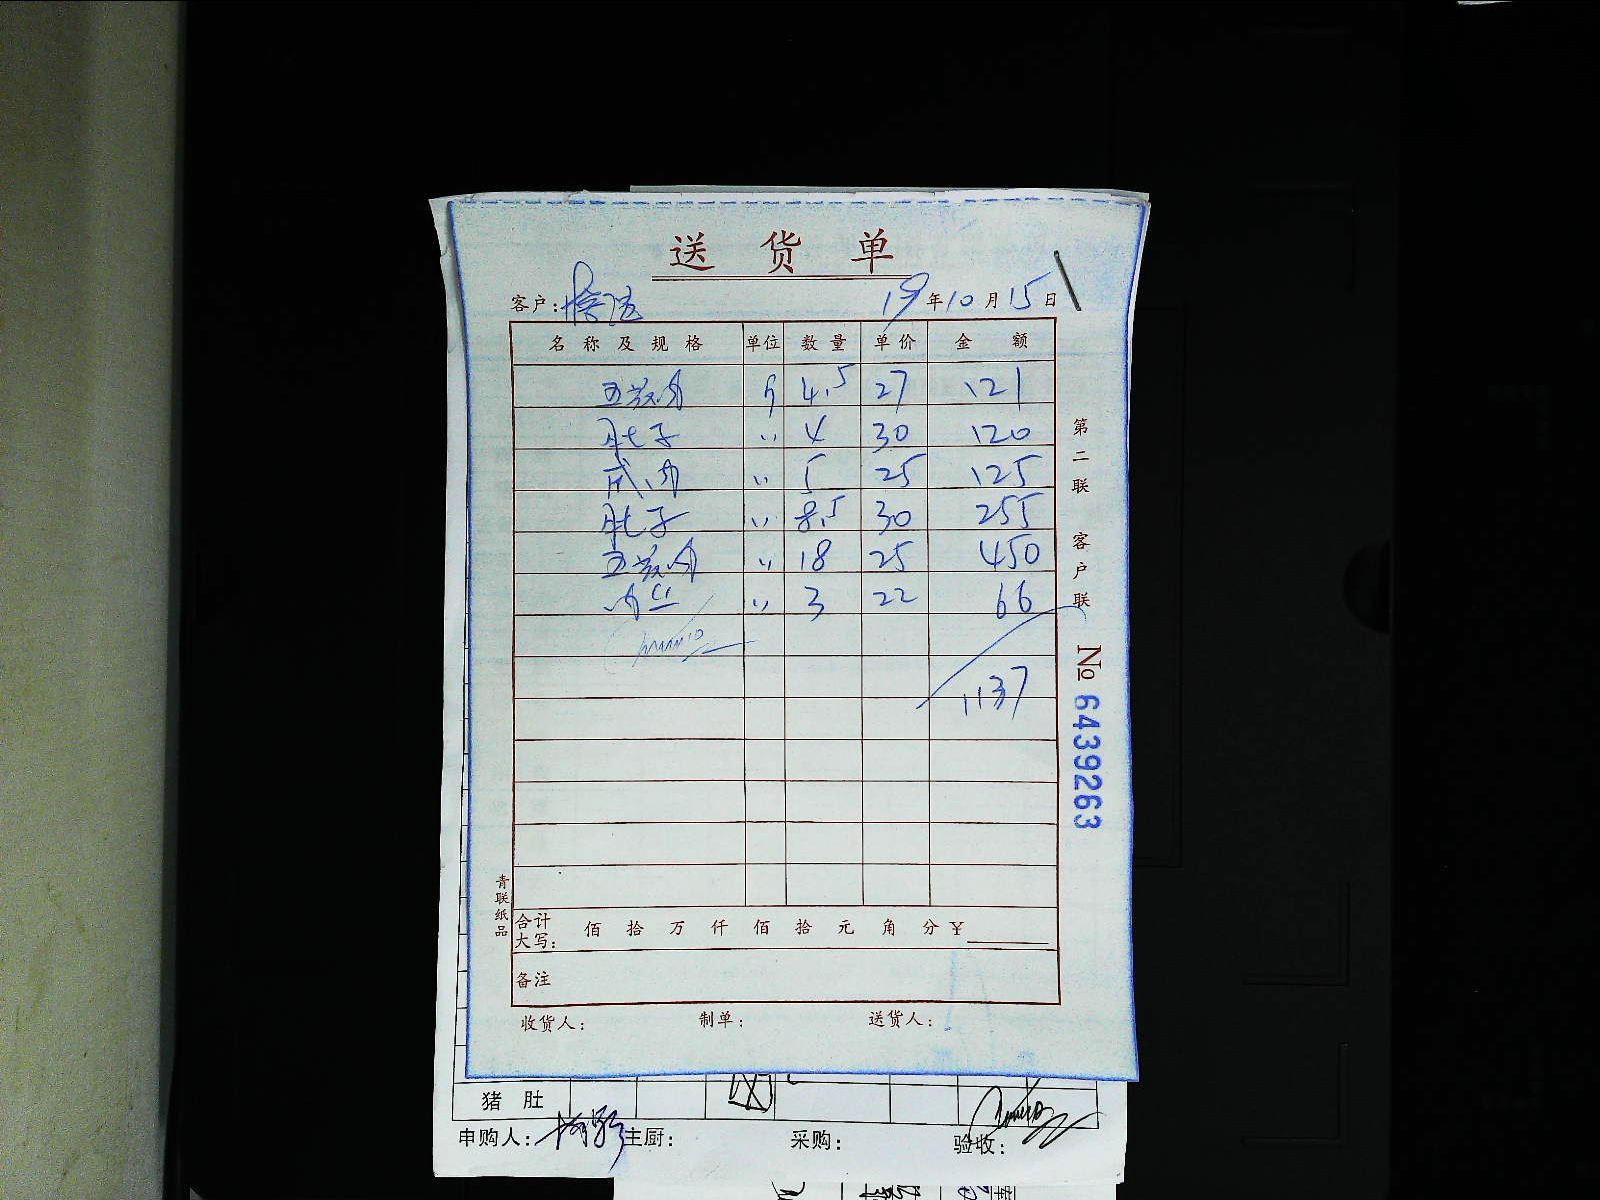 送货单
客户: 19年10月15日
名称及规格 单位 数量 单价 金额
五花肉 斤 4.5 27 121
肚子 〃 4 30 120
成肉 〃 5 25 125
肚子 〃 8.5 30 255
五花肉 〃 18 25 450
肉丝 〃 3 22 66
1137
第二联 客户联
No 6439263
青联纸品
合计大写: 佰 拾 万 仟 佰 拾 元 角 分 ¥
备注
收货人: 制单: 送货人:
猪肚
申购人: 主厨: 采购: 验收: